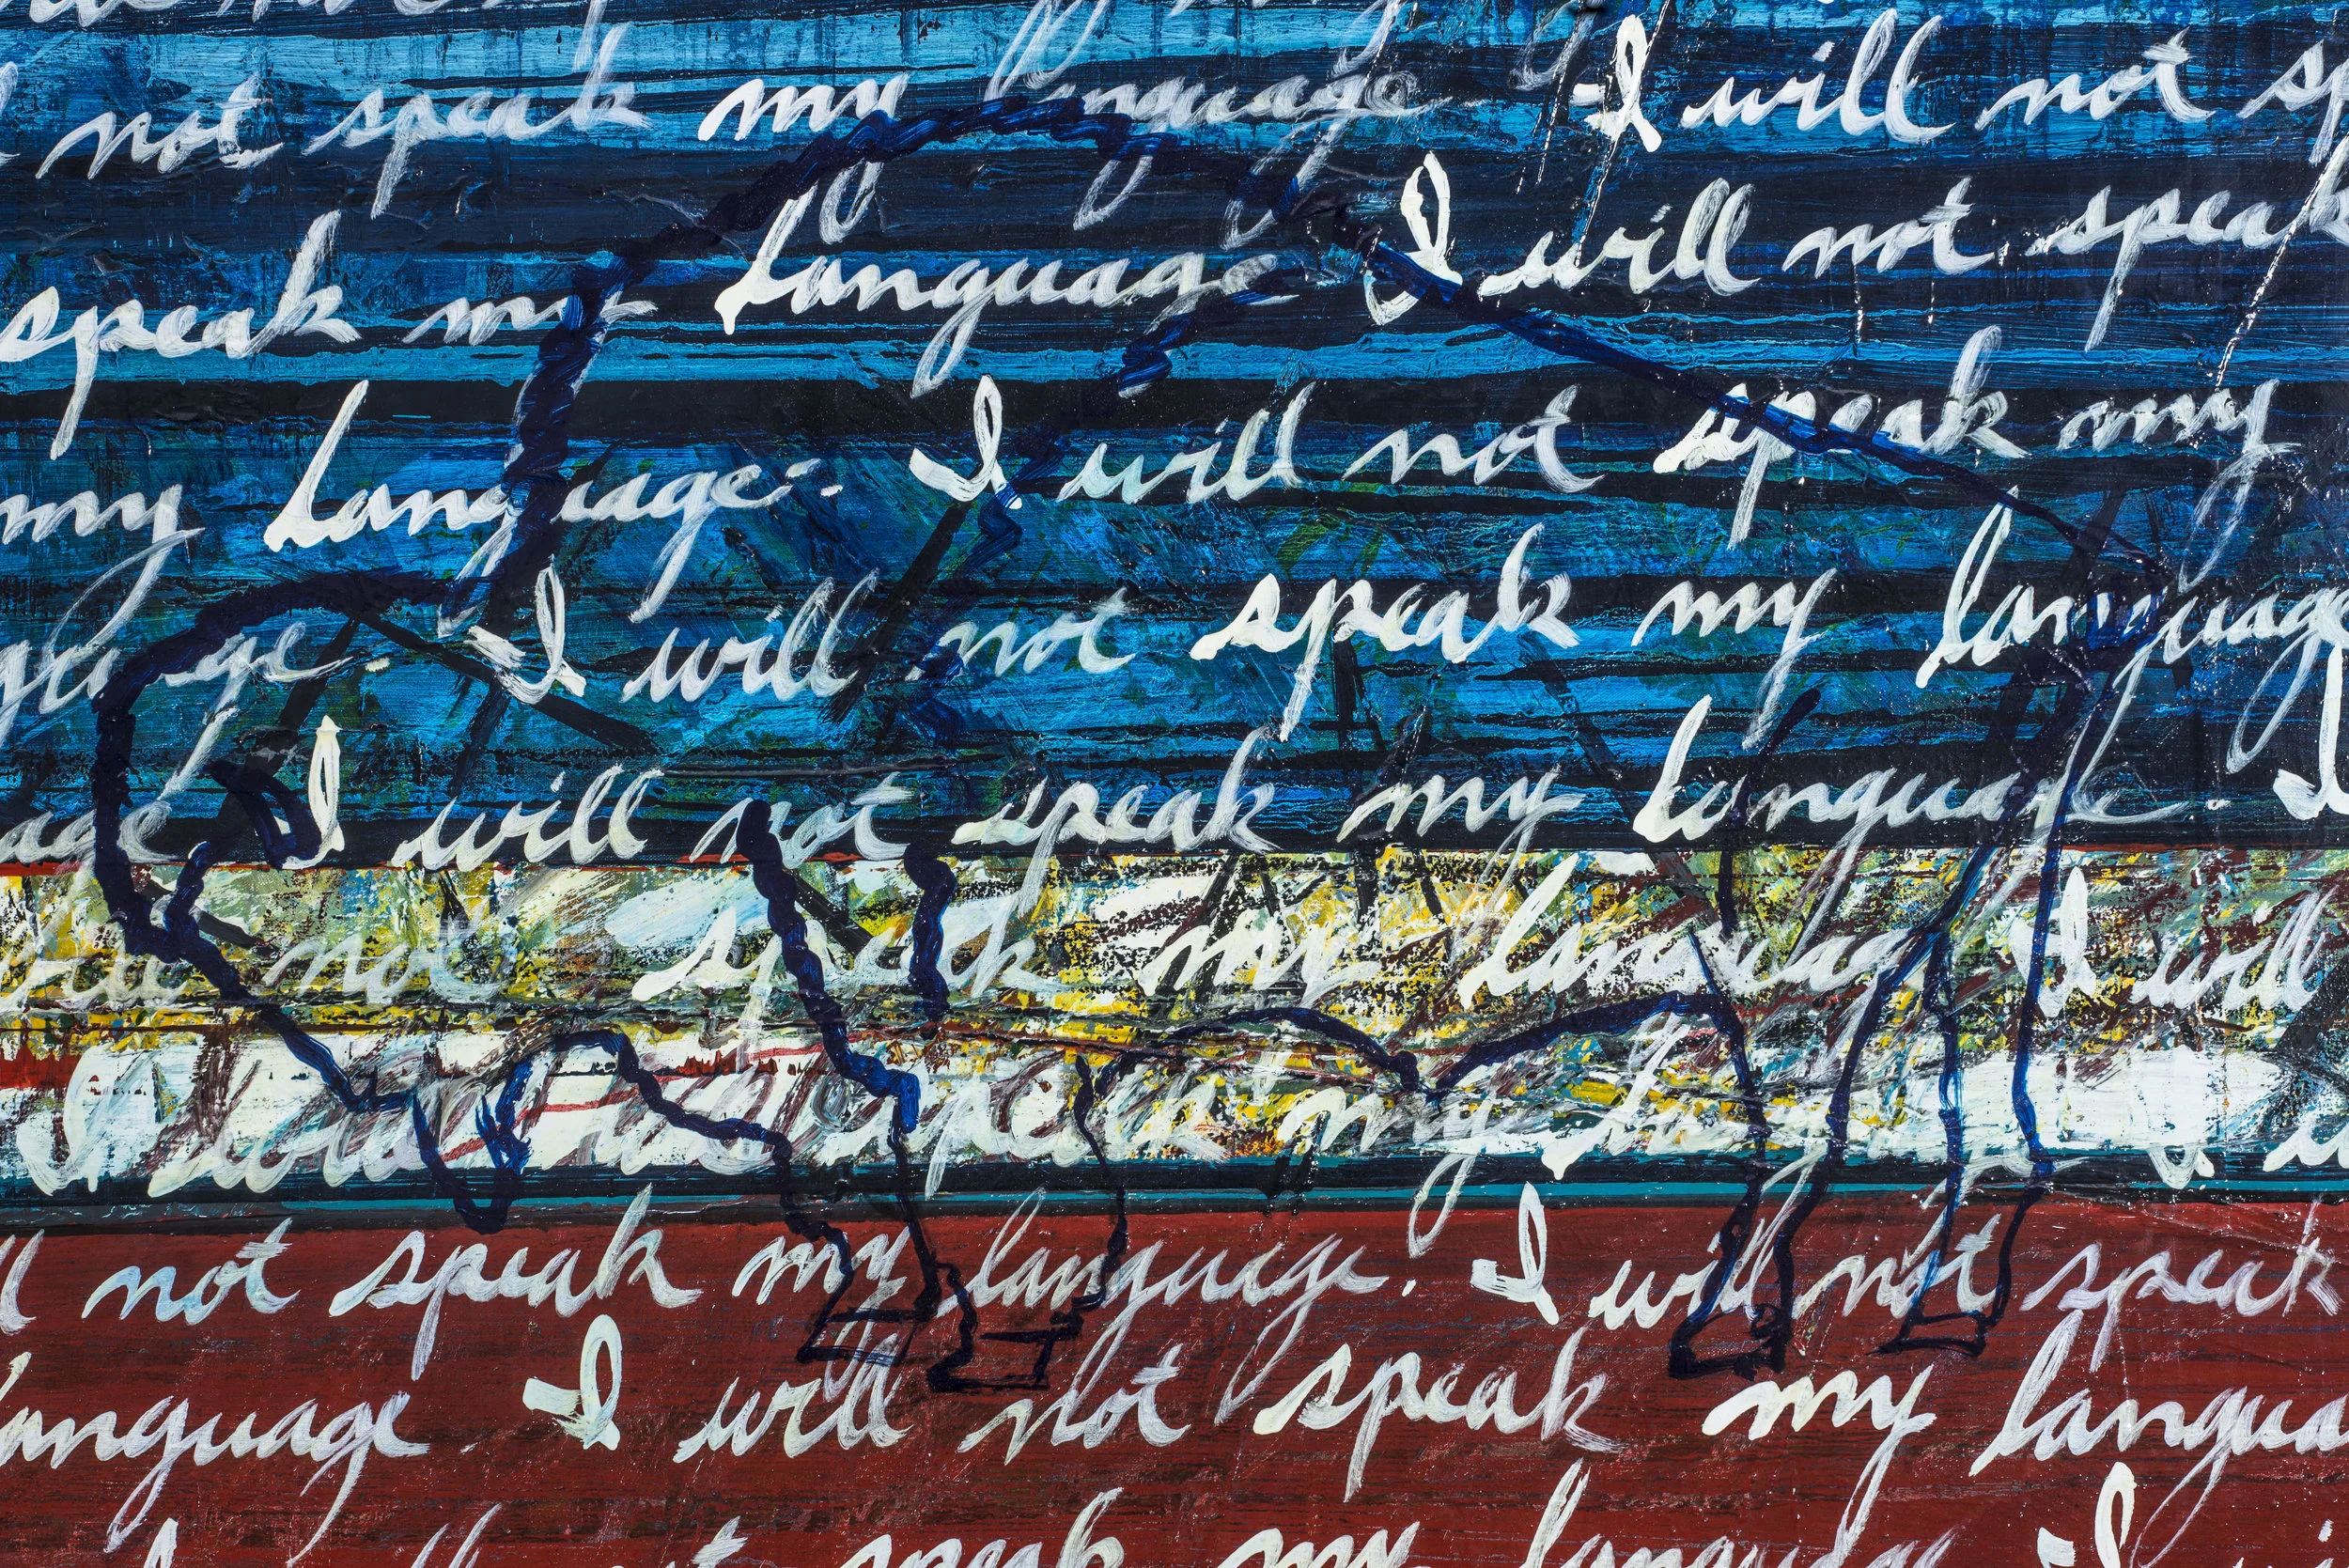 not speak my language I will not sp
speak my language I will not speak
my language. I will not speak my
guage. I will not speak my language
age I will not speak my language. I
not speak my language I will
I will not speak my
ll not speak my language. I will not speak
language I will not speak my langua
speak my language I